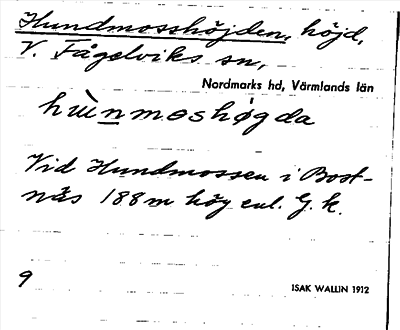 Hundmosshöjden, höjd,
V. Fågelviks sn,
Nordmarks hd, Värmlands län
hùnmoshøgda
Vid Hundmossen i Bost-
näs 188 m hög enl. G. k.
9
ISAK WALLIN 1912